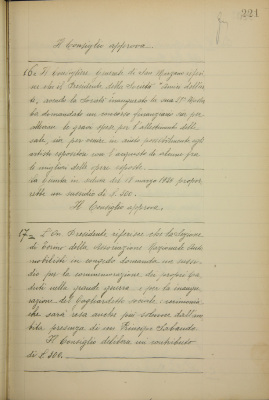 221
Il Consiglio approva.
16= Il Consigliere
ne che il Presidente della Società
, avendo la Società inaugurato la sua
ha domandato un concorso finanziario per
le gravi spese per l'allestimento delle
sale, sia per venire in aiuto possibilmente agli
artisti espositori con l'acquisto da
le migliori delle opere esposte.
La Giunta in seduta del 18 marzo 1930 propor
rebbe un sussidio di L. 500.
Il Consiglio approva.
17= L'On. Presidente riferisce che la Sezione
di Torino della Associazione Nazionale
mobilisti in congedo domanda un sussi
dio per la commemorazione dei propri Ca
duti nella grande guerra e per la inaugu
razione del Gagliardetto sociale, cerimonia
che sarà resa anche più solenne dall'Au
gusta presenza di un Principe Sabaudo.
Il Consiglio delibera un contributo
di L. 300.